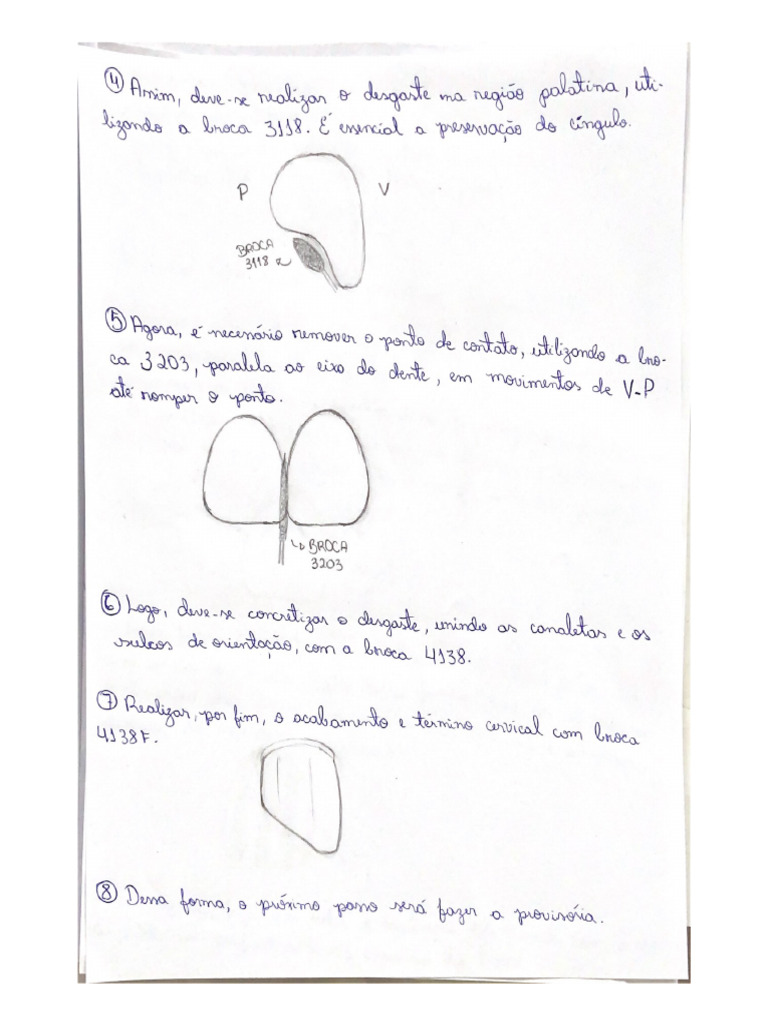 ④ Assim, deve-se realizar o desgaste na região palatina, uti-
lizando a broca 3118. É essencial a preservação do cíngulo.
P V
BROCA
3118
⑤ Agora, é necessário remover o ponto de contato, utilizando a bro-
ca 3203, paralela ao eixo do dente, em movimentos de V-P
até romper o ponto.
BROCA
3203
⑥ Logo, deve-se concretizar o desgaste, unindo as canaletas e os
sulcos de orientação, com a broca 4138.
⑦ Realizar, por fim, o acabamento e término cervical com broca
4138F.
⑧ Dessa forma, o próximo passo será fazer a provisória.